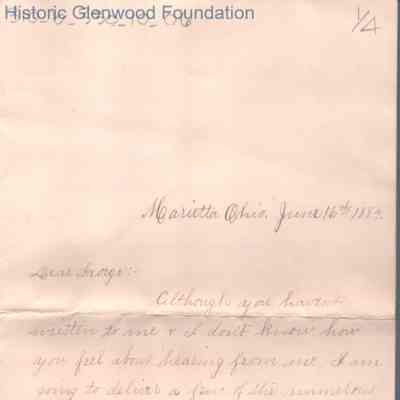 Historic Glenwood Foundation
1/4
Marietta Ohio, June 16th 1889.
Dear George:-
Although you haven't
written to me & I don't know how
you feel about hearing from me. I am
going to deliver a few of the numerous